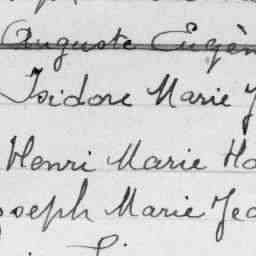 Auguste Eugèn
Isidore Marie J
Henri Marie Ho
Joseph Marie Jea